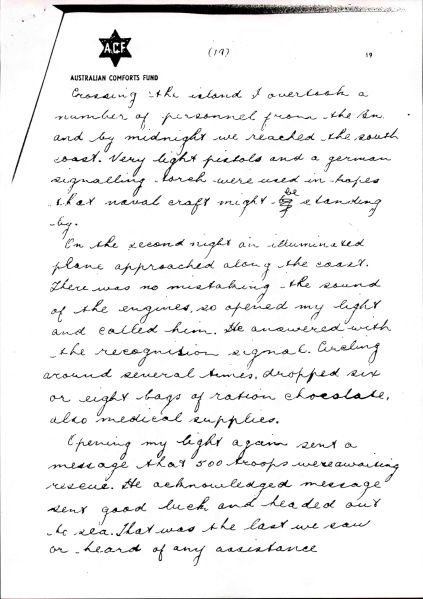 A.C.F.
(19)
19
AUSTRALIAN COMFORTS FUND
Crossing the island I overtook a
number of personnel from the Bn
and by midnight we reached the south
coast. Very light pistols and a german
signalling torch were used in hopes
that naval craft might be standing
by.
On the second night an illuminated
plane approached along the coast.
There was no mistaking the sound
of the engines, so opened my light
and called him. He answered with
the recognition signal. Circling
around several times, dropped six
or eight bags of ration chocolate,
also medical supplies.
Opening my light again sent a
message that 500 troops were awaiting
rescue. He acknowledged message
sent good luck and headed out
to sea. That was the last we saw
or heard of any assistance